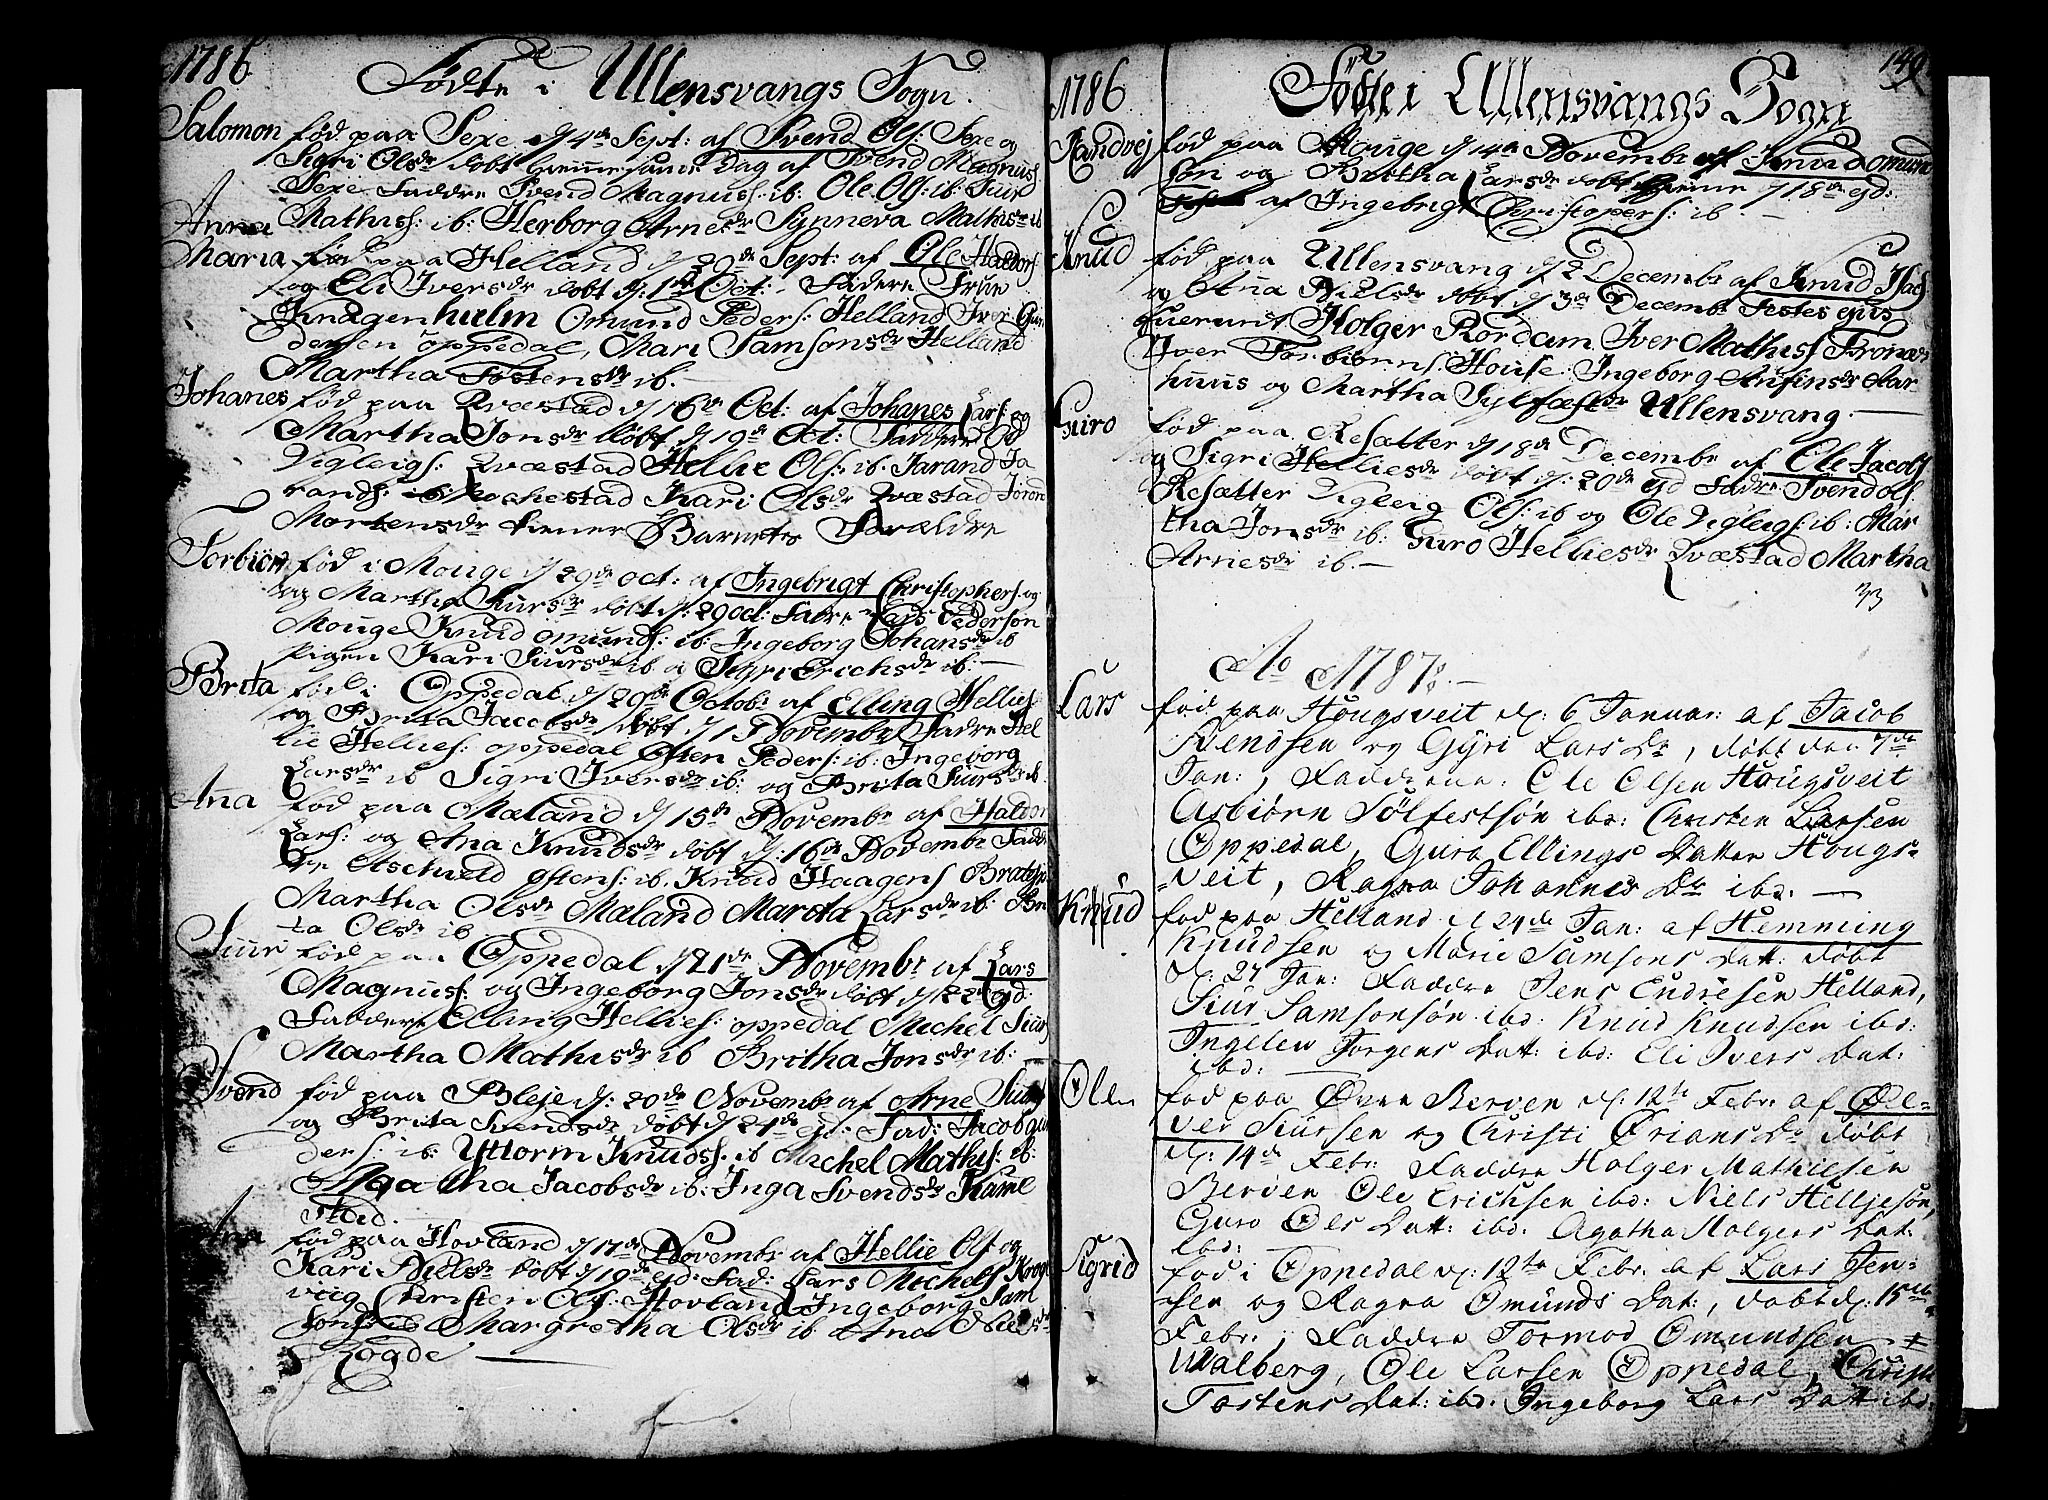 1786
Fødte i Ullensvangs Sogn.
Salomon fød paa Sexe d 4de Sept: af Svend Ols: Sexe og
Sigri Olsdr døbt hiemme samme Dag af Svend Magnuss:
Sexe Faddre Svend Magnuss: ib: Ole Ols: ib: Siur
Mathiss: ib: Herborg Arnesdr Synneva Mathisdr ib
Anna
Maria fød paa Helland d 29de Sept: af Ole Haldors:
og Eli Iversdr døbt d: 1ste Oct: Faddere Frue
Knagenhielm Omund Peders: Helland Iver Gun
dersen Oppedal, Mari Samsonsdr Helland
Martha Tostensdr ib.
Johanes fød paa Qvæstad d 16de Oct: af Johanes Lars: og
Martha Jonsdr døbt d 19de Oct: Faddere Od
Vigleigs: Qvæstad Hellie Ols: ib. Jarand Ja
rands: Lochestad Kari Olsdr Qvæstad Joron
Mortensdr tiener Barnets Forældre
Torbiörn fød i Mouge d 29de Oct: af Ingebrigt Christophers: og
og Martha Siursdr døbt d: 29 Oct: Fadre Lars Pederson
Mouge Knud Omunds: ib: Ingeborg Johansdr ib
Pigen Kari Siursdr ib og Sigri Erichsdr ib:
Brita fød i Oppedal d 29de Octobr af Elling Hellies:
og Brita Jacobsdr døbt d 1 Novembr Fadre Hel
lie Hellies: Oppedal Østen Peders: ib: Ingeborg
Larsdr ib Sigri Iversdr ib: og Brita Siursdr ib.
Ana fød paa Mæland d 15de Novembr af Haldor
Lars: og Ana Knudsdr døbt d: 16de Novembr Fad
dre Aschield Østens: ib. Knud Haagens Bratten
Martha Olsdr Mæland Marita Larsdr ib: Bri
ta Olsdr ib
Siur fød paa Oppedal d 21de Novembr af Lars
Magnus: og Ingeborg Jonsdr døbt d 22de ejd:
Faddere Elling Hellies: Oppedal Michel Siurs
Martha Mathisdr ib Britha Jonsdr ib:
Svend fød paa Bleje d: 20de Novembr af Arne Siurs
og Brita Svendsdr døbt d 24de ejd: Fad: Jacob Gun
ders: ib: Uttorm Knuds: ib Michel Mathis: ib:
Agatha Jacobsdr ib: Inga Svendsdr
stad.
Ana fød paa Hovland d 17de Novembr af Hellie Ols: og
Kari Nielsdr døbt d 19de ejd: Fad: Lars Michels Krog
viig Christen Ols: Hovland Ingeborg Sam
sonsdr Margretha Olsdr ib Ana
Rogde
1786
Fødte i Ullensvangs Sogn
149
fød paa Mouge d 14de Novembr af Knud Omund
Søn og Britha Larsdr døbt hiemme d 18de ejd:
af Ingebrigt Christophers: ib.
Knud fød paa Ullensvang d 2 Decembr af Knud
og Ana Nielsdr døbt d 3de Decembr Testes ejus
fuerunt Holger Rordam Iver Mathiss
Iver Torbiørns: House Ingeborg Anfinsdr Aar
huus og Martha Sylfæstdr Ullensvang.
Guro fød paa Resætter d 18de Decembr af Ole Jacobs
og Sigri Helliesdr døbt d: 20de ejd Fadre Svend Ols:
Resætter Vigleig Ols: ib og Ole Vigleigs: ib: Mar
tha Jonsdr ib: Guro Helliesdr Qvæstad Martha
Arnesdr ib.
33
Ao 1787:
Lars fød paa Hougsveit d: 6 Januar: af Jacob
Svendsen og Gyri Lars Dr, døbt den 7de
Jan:, Faddrene: Ole Olsen Hougsveit
Asbiørn Sölfestsön ibd: Christen Larsen
Oppedal, Guro Ellings Datter Hougs=
=veit, Ragna Johannes Dr ibd.
Knud fød paa Helland d 24de Jan: af Hemming
Knudsen og Marie Samsons Datt: døbt
d: 27 Jan: Faddre Jens Endresen Helland,
Siur Samsonsön ibd: Knud Knudsen ibd:
Ingelev Jorgens Datt: ibd: Eli Ivers Dat:
ibd:
Ole fød paa Øvre Berven d: 12te Febr: af Øl=
ver Siursen og Christi Ørians Dr døbt
d: 14de Febr: Faddre Holger Mathiesen
Berven Ole Erichsen ibd: Niels Helljesön,
Guro Ols Datt: ibd: Agatha Holgers Dat:
ibd:
Sigrid fød i Oppedal d: 12te Febr: af Lars Jen=
=sen og Ragna Omunds Dat:, døbt d: 15de
Febr:, Faddre Tormod Omundsen
Walberg, Ole Larsen Oppedal, Christi
Tostens Dat: ibd. Ingeborg Lars Datt ibd: